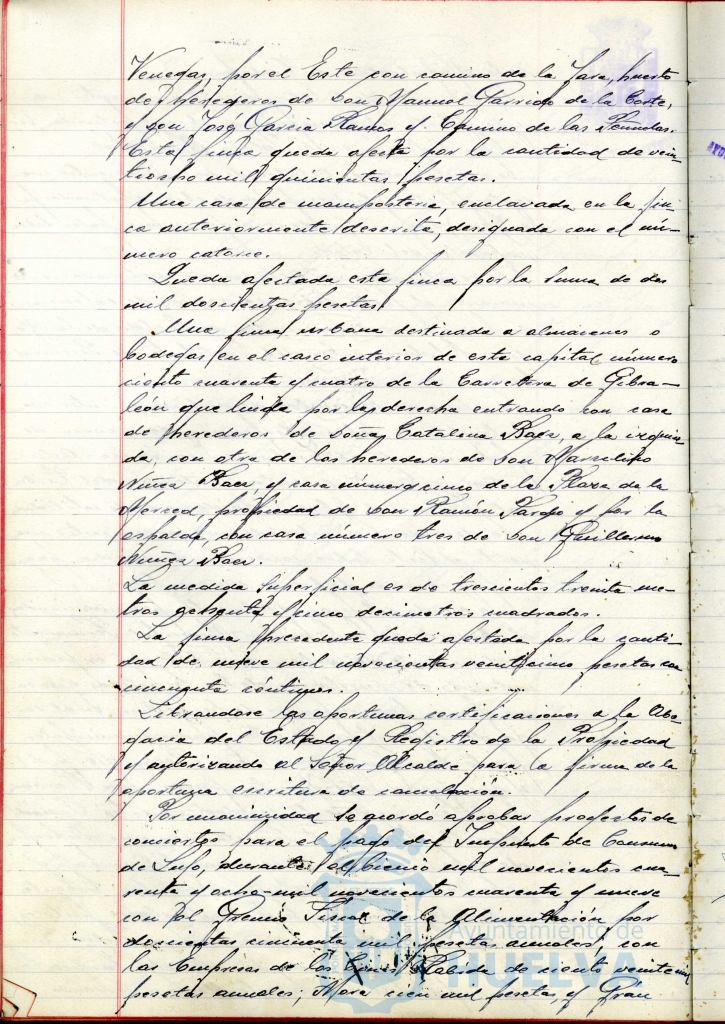 Venegas, por el Este con camino de la Jara, huerto
de herederos de Don Manuel Garrido de la Corte,
y don José Garcia Ramos y Camino de las
Esta finca queda afecta por la cantidad de vein-
tiocho mil quinientas pesetas.
Una casa de mamposteria, enclavada en la fin-
ca anteriormente descrita, designada con el nú-
mero catorce.
Queda afectada esta finca por la suma de dos
mil doscientas pesetas.
Una finca urbana destinada a almacenes o
bodegas en el casco interior de esta capital número
ciento cuarenta y cuatro de la Carretera de Gibra-
león que linda por la derecha entrando con casa
de herederos de Doña Catalina Baez, a la izquier-
da, con otra de los herederos de Don Marcelino
Núñez Baez, y casa número cinco de la Plaza de la
Merced, propiedad de Don Ramón Vargas y por la
espalda, con casa número tres de Don Guillermo
Núñez Baez.
La medida superficial es de trescientos treinta me-
tros ochenta y cinco decimetros cuadrados.
La finca precedente queda afectada por la canti-
dad de nueve mil novecientas veinticinco pesetas con
cincuenta céntimos.
Librandose las oportunas certificaciones a la Abo-
gacia del Estado y Registro de la Propiedad
y autorizando al Señor Alcalde para la firma de la
oportuna escritura de cancelación.
Por unanimidad se acordó aprobar proyectos de
conciertos para el pago del Impuesto de Consumo
de Lujo, durante el bienio mil novecientos cua-
renta y ocho-mil novecientos cuarenta y nueve
con el Gremio Fiscal de la Alimentación por
doscientas cincuenta mil pesetas anuales, con
las Empresas de los Cines Rabida de ciento veinte mil
pesetas anuales; Mora cien mil pesetas, y Gran
Ayuntamiento de
HUELVA